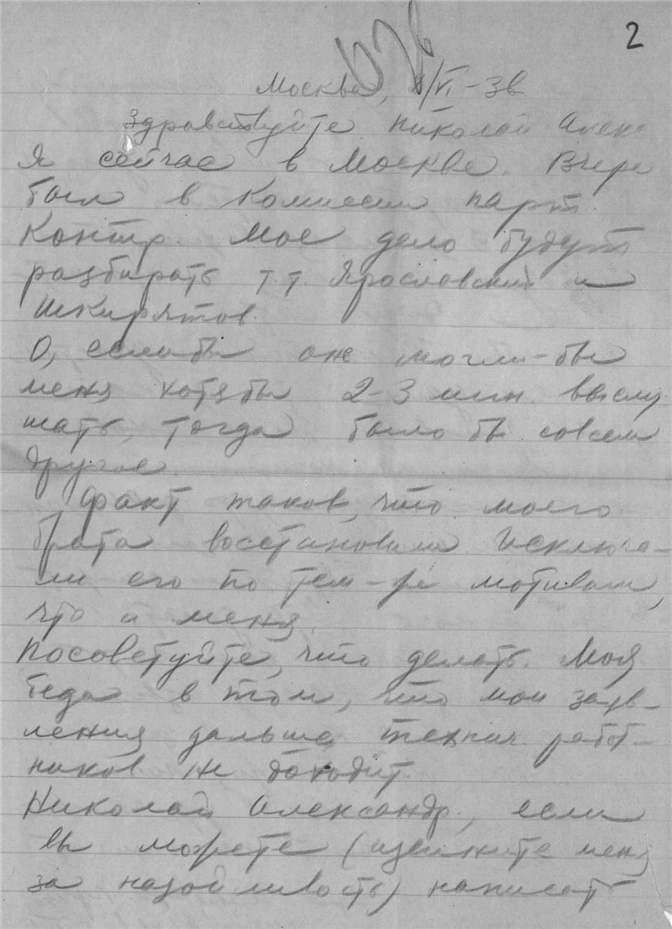 2
Москва, /VI-38
Здравствуйте Николай Алекс
Я сейчас в Москве. Вчера
был в Комиссии парт.
Контр. Мое дело будут
разбирать т.т. Ярославский и
Шкирятов.
О, еслибы они могли-бы
меня хотябы 2-3 мин. выслу
шать, тогда было бы совсем
другое.
Факт таков, что моего
брата восстановили Исключа-
ли его по тем-же мотивам,
что и меня.
Посоветуйте, что делать. Моя
беда в том, что мои заяв-
ления дальше технич. работ-
ников не доходит.
Николай Александр., если
вы можете (извините меня
за назойливость) написать